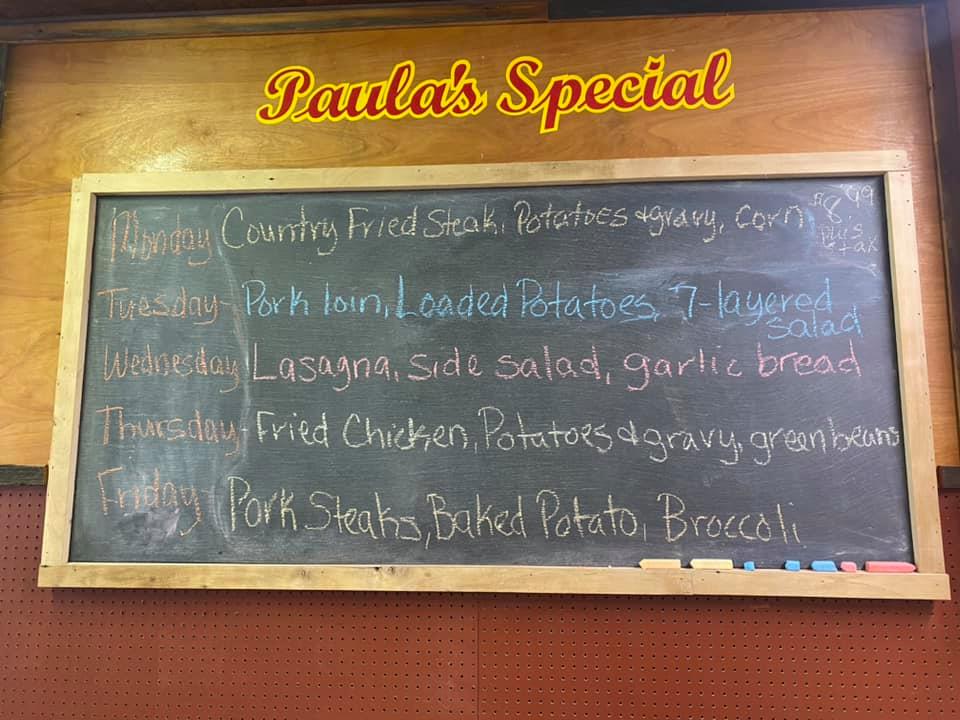 Paula's Special
Monday Country Fried Steak, Potatoes & gravy, corn $8.99
plus
tax
Tuesday- Pork loin, Loaded Potatoes, 7-layered
salad
Wednesday Lasagna, side salad, garlic bread
Thursday- Fried Chicken, Potatoes & gravy, green beans
Friday- Pork Steaks, Baked Potato, Broccoli